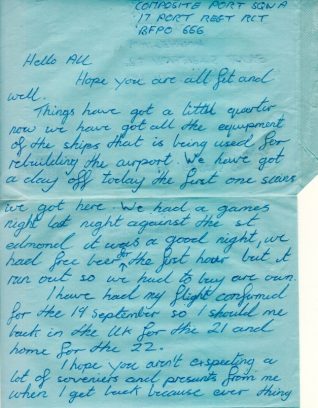 COMPOSITE PORT SQN A
17 PORT REGT RCT
BFPO 666
Hello All
Hope you are all fit and
well.
Things have got a little quarter
now we have got all the equipment
of the ships that is being used for
rebuilding the airport. We have got
a day off today the first one scines
we got here. We had a games
night last night against the st
edmond it was a good night, we
had free beer for the first hour but it
run out so we had to buy are own.
I have had my flight confurmed
for the 19 September so I should me
back in the UK for the 21 and
home for the 22.
I hope you aren't exspecting a
lot of soveniers and presents from me
when I get back because ever thing